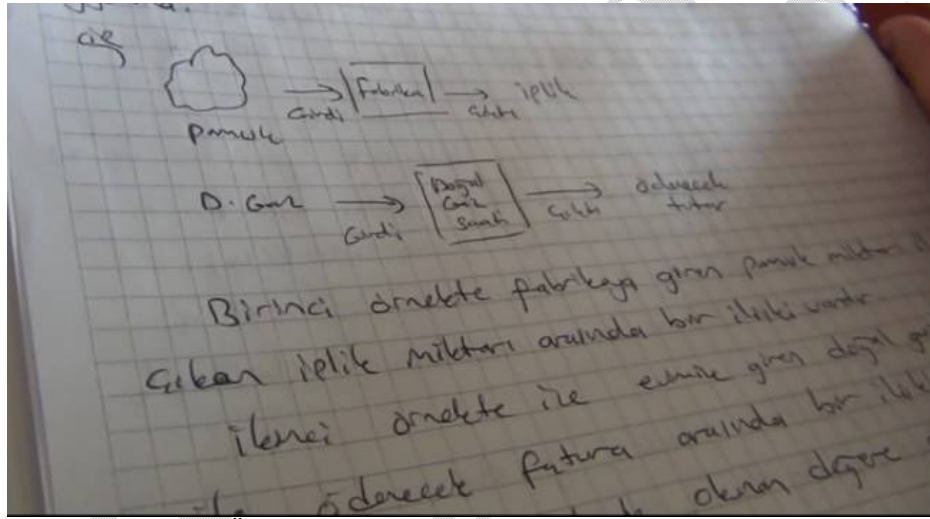 Pamuk → Girdi |Fabrika| → Çıktı iplik
D. Gaz → Girdi |Doğal Gaz Saati| → Çıktı ödenecek tutar
Birinci örnekte fabrikaya giren pamuk miktarı
Çıkan iplik miktarı arasında bir ilişki vardır
ikinci örnekte ise evimize giren doğal
ödenecek fatura arasında bir
okunan değere